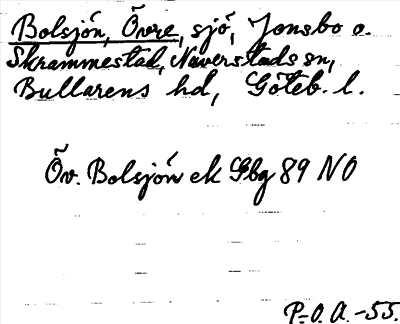 Bolsjön, Övre, sjö, Jonsbo o.
Skrammestad, Naverstads sn,
Bullarens hd, Göteb. l.
Öv. Bolsjön ek Gbg 89 NO
P-O. A. -55.